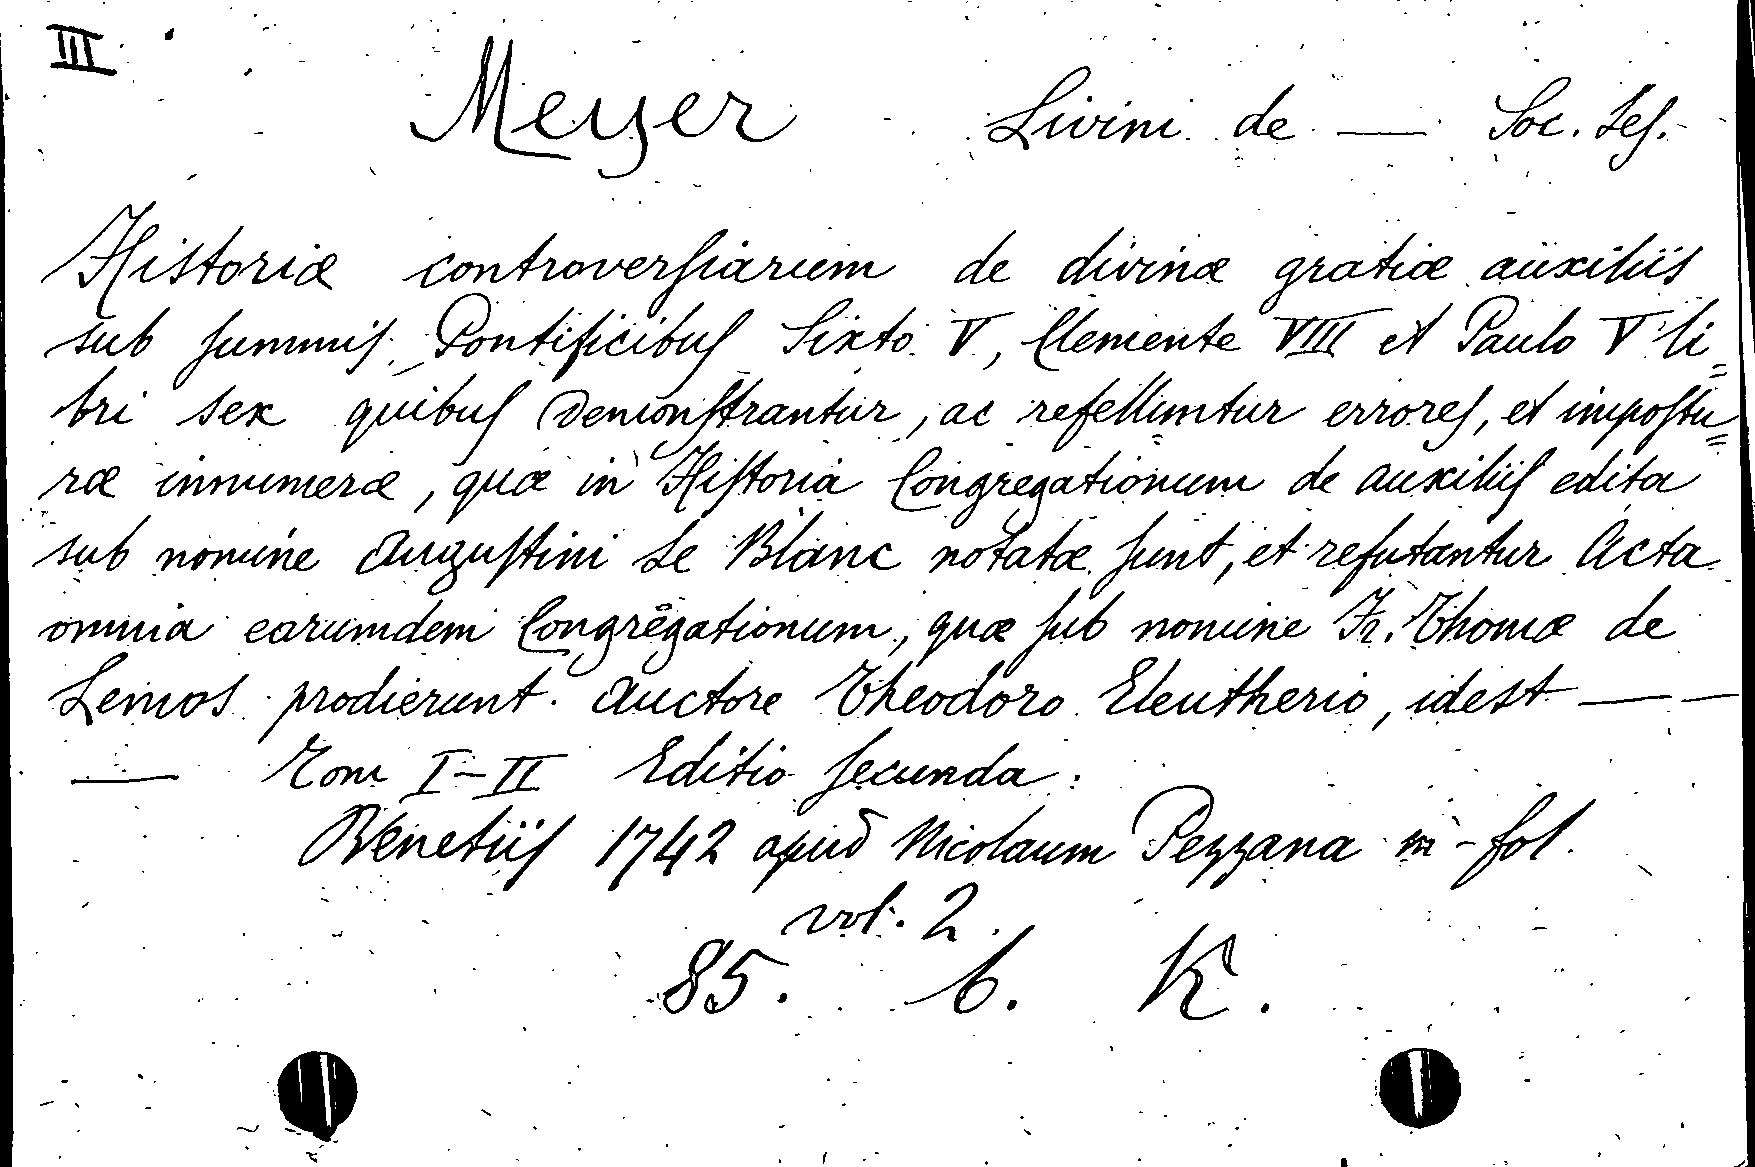 III
Meyer Livini de — Soc. Jes.
Historiæ controversiarum de divinæ gratiæ auxiliis
sub summis Pontificibus Sixto V, Clemente VIII et Paulo V li=
bri sex quibus demonstrantur, ac refelluntur errores, et impostu=
ræ innumeræ, quæ in Historia Congregationum de auxiliis edita
sub nomine Augustini Le Blanc notatæ sunt, et refutantur Acta
omnia earumdem Congregationum, quæ sub nomine Fr. Thomæ de
Lemos prodierunt. Auctore Theodoro Eleutherio, idest — —
— Tom I-II Editio secunda:
Venetiis 1742 apud Nicolaum Pezzana in-fol.
vol. 2.
85. b. K.